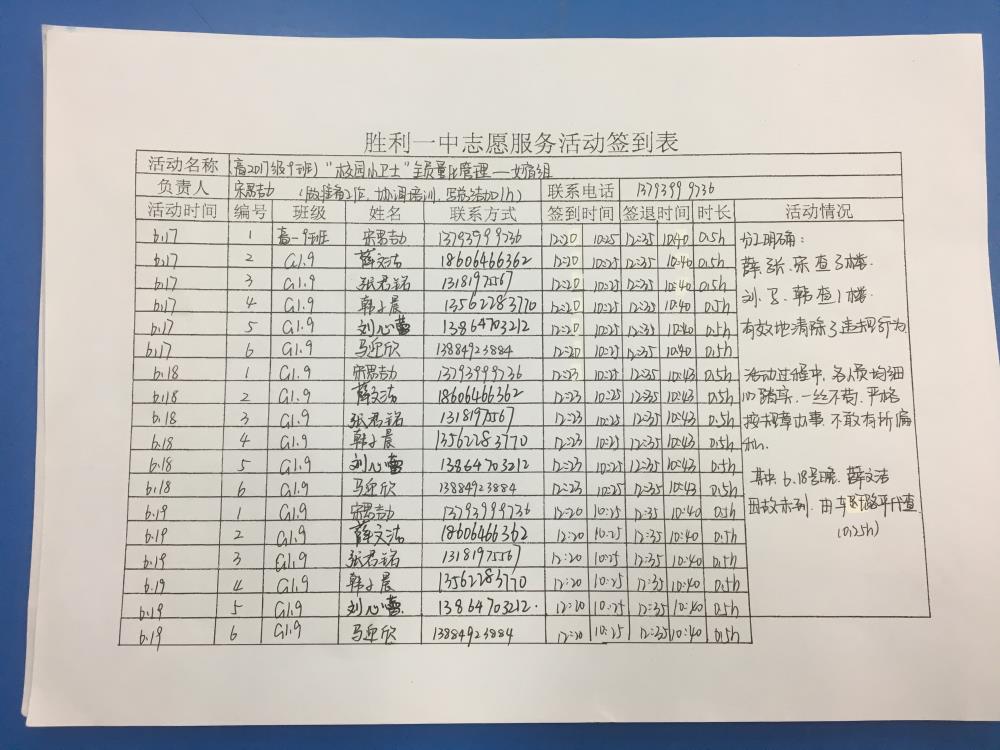 胜利一中志愿服务活动签到表
活动名称 (高2017级9班)“校园小卫士”全员量化管理——女宿组
负责人 宋男劼 (做准备工作、协调培训、写总结加1h) 联系电话 13793999736
活动时间 编号 班级 姓名 联系方式 签到时间 签退时间 时长 活动情况
6.17 1 高一9班 13793999736 12:20 10:25 12:35 10:40 0.5h
6.17 2 G1.9 薛文洁 18606466362 12:20 10:25 12:35 10:40 0.5h
6.17 3 G1.9 张君铭 13181975567 12:20 10:25 12:35 10:40 0.5h
6.17 4 G1.9 韩小晨 13562283770 12:20 10:25 12:35 10:40 0.5h
6.17 5 G1.9 刘心蕾 13864703212 12:20 10:25 12:35 10:40 0.5h
6.17 6 G1.9 马迎欣 13884923884 12:20 10:25 12:35 10:40 0.5h
6.18 1 G1.9 13793999736 12:23 10:25 12:35 10:43 0.5h
6.18 2 G1.9 薛文洁 18606466362 12:23 10:25 12:35 10:43 0.5h
6.18 3 G1.9 张君铭 13181975567 12:23 10:25 12:35 10:43 0.5h
6.18 4 G1.9 韩小晨 13562283770 12:23 10:25 12:35 10:43 0.5h
6.18 5 G1.9 刘心蕾 13864703212 12:23 10:25 12:35 10:43 0.5h
6.18 6 G1.9 马迎欣 13884923884 12:23 10:25 12:35 10:43 0.5h
6.19 1 G1.9 13793999736 12:20 10:25 12:35 10:40 0.5h
6.19 2 G1.9 薛文洁 18606466362 12:20 10:25 12:35 10:40 0.5h
6.19 3 G1.9 张君铭 13181975567 12:20 10:25 12:35 10:40 0.5h
6.19 4 G1.9 韩小晨 13562283770 12:20 10:25 12:35 10:40 0.5h
6.19 5 G1.9 刘心蕾 13864703212. 12:20 10:25 12:35 10:40 0.5h
6.19 6 G1.9 马迎欣 13884923884 12:20 10:25 12:35 10:40 0.5h
分工明确:
薛、张、宋查3楼.
刘、马、韩查1楼.
有效地清除了违规行为
活动过程中,各人员均细
心踏实、一丝不苟、严格
按规章办事,不敢有所偏
私.
其中 6.18号晚,薛文洁
因故未到,由
(0.25h)